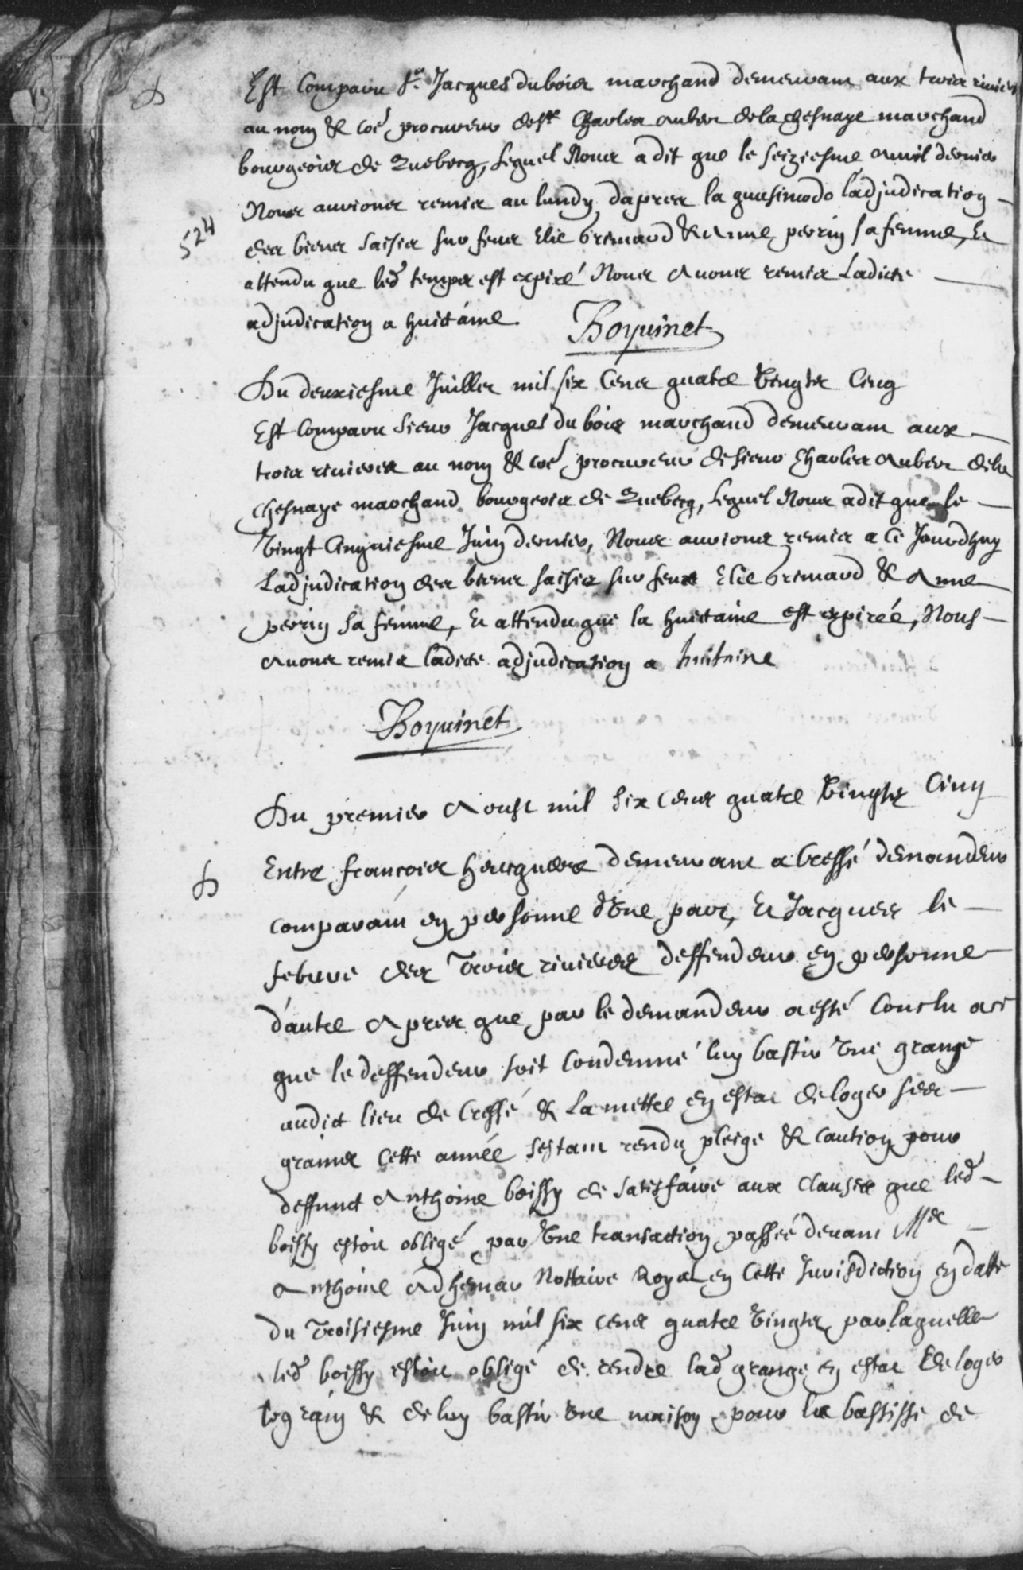 Est Comparu Sr. Jacques dubois marchand demeurant aux trois rivieres
au nom & coe procureur de sr Charles aubert de la chesnaye marchand
bourgeois de Quebecq, Lequel Nous a dit que le seiziesme avril dernier
Nous aurions remis au lundy daprer la quasimodo ladjudication
524
des biens saisis sur feus Elie Gremaud & Anne perrin sa femme, Et
attendu que led temps est expiré Nous avons remis Ladicte
adjudication a huictaine
Boyuinet
Du deuxiesme Juillet mil six Cens quatre Vingts Cinq
Est Comparu Sieur Jacques du bois marchand demeurant aux
trois rivieres au nom & coe procureur de sieur Charles Aubert de la
chesnaye marchand bourgeois de Quebecq, Lequel Nous a dit que le
Vingt Cinquiesme Juin dernier, Nous aurions remis a Ce Jourdhuy
Ladjudication des biens saisis sur feus Elie Gremaud & Anne
perrin sa femme, Et attendu que la huictaine est expirée, Nous
Avons remis ladicte adjudication a huitaine
Boyuinet
Du premier Aoust mil Six Cens quatre Vingts Cinq
Entre francois demeurant a Cressé demandeur
comparant en personne d'Une part, Et Jacques le
febure des Trois rivieres deffendeur en personne
d'autre Apres que par le demandeur a esté Conclu ace
que le deffendeur soit Condemné luy bastir Une grange
audict lieu de Cressé & La mettre en estat de loger ses
grains Cette année sestant rendu pleige & caution pour
deffunct Anthoine boissy de satisfaire aux clauses que led
boissy estoit obligé par Une transaction passée devant Me
Anthoine Adhemar Nottaire Royal en Cette Jurisdiction en datte
du Troisiesme Juin mil six cens quatre Vingts, par laquelle
led boissy estoit obligé de rendre lad grange en estat de loger
le grain & de luy bastir Une maison, pour la bastisse de